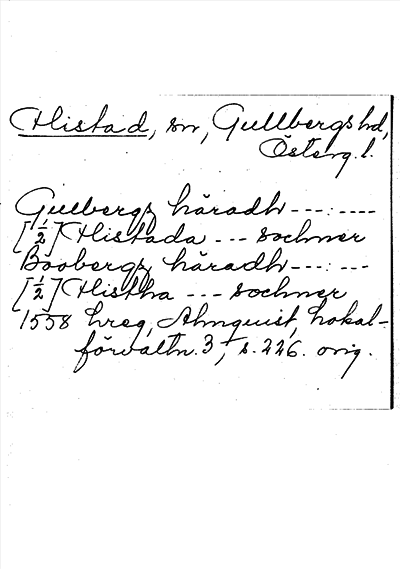 Flistad, sn, Gullbergs hd,
Österg. l.
Gulbergz häradh ---:----
[½] Flistada --- sochner
Boobergz häradh ---:---
[½] Flistha --- sochner
1558 hreg, Almquist, Lokal-
förvaltn. 3, s. 226. orig.